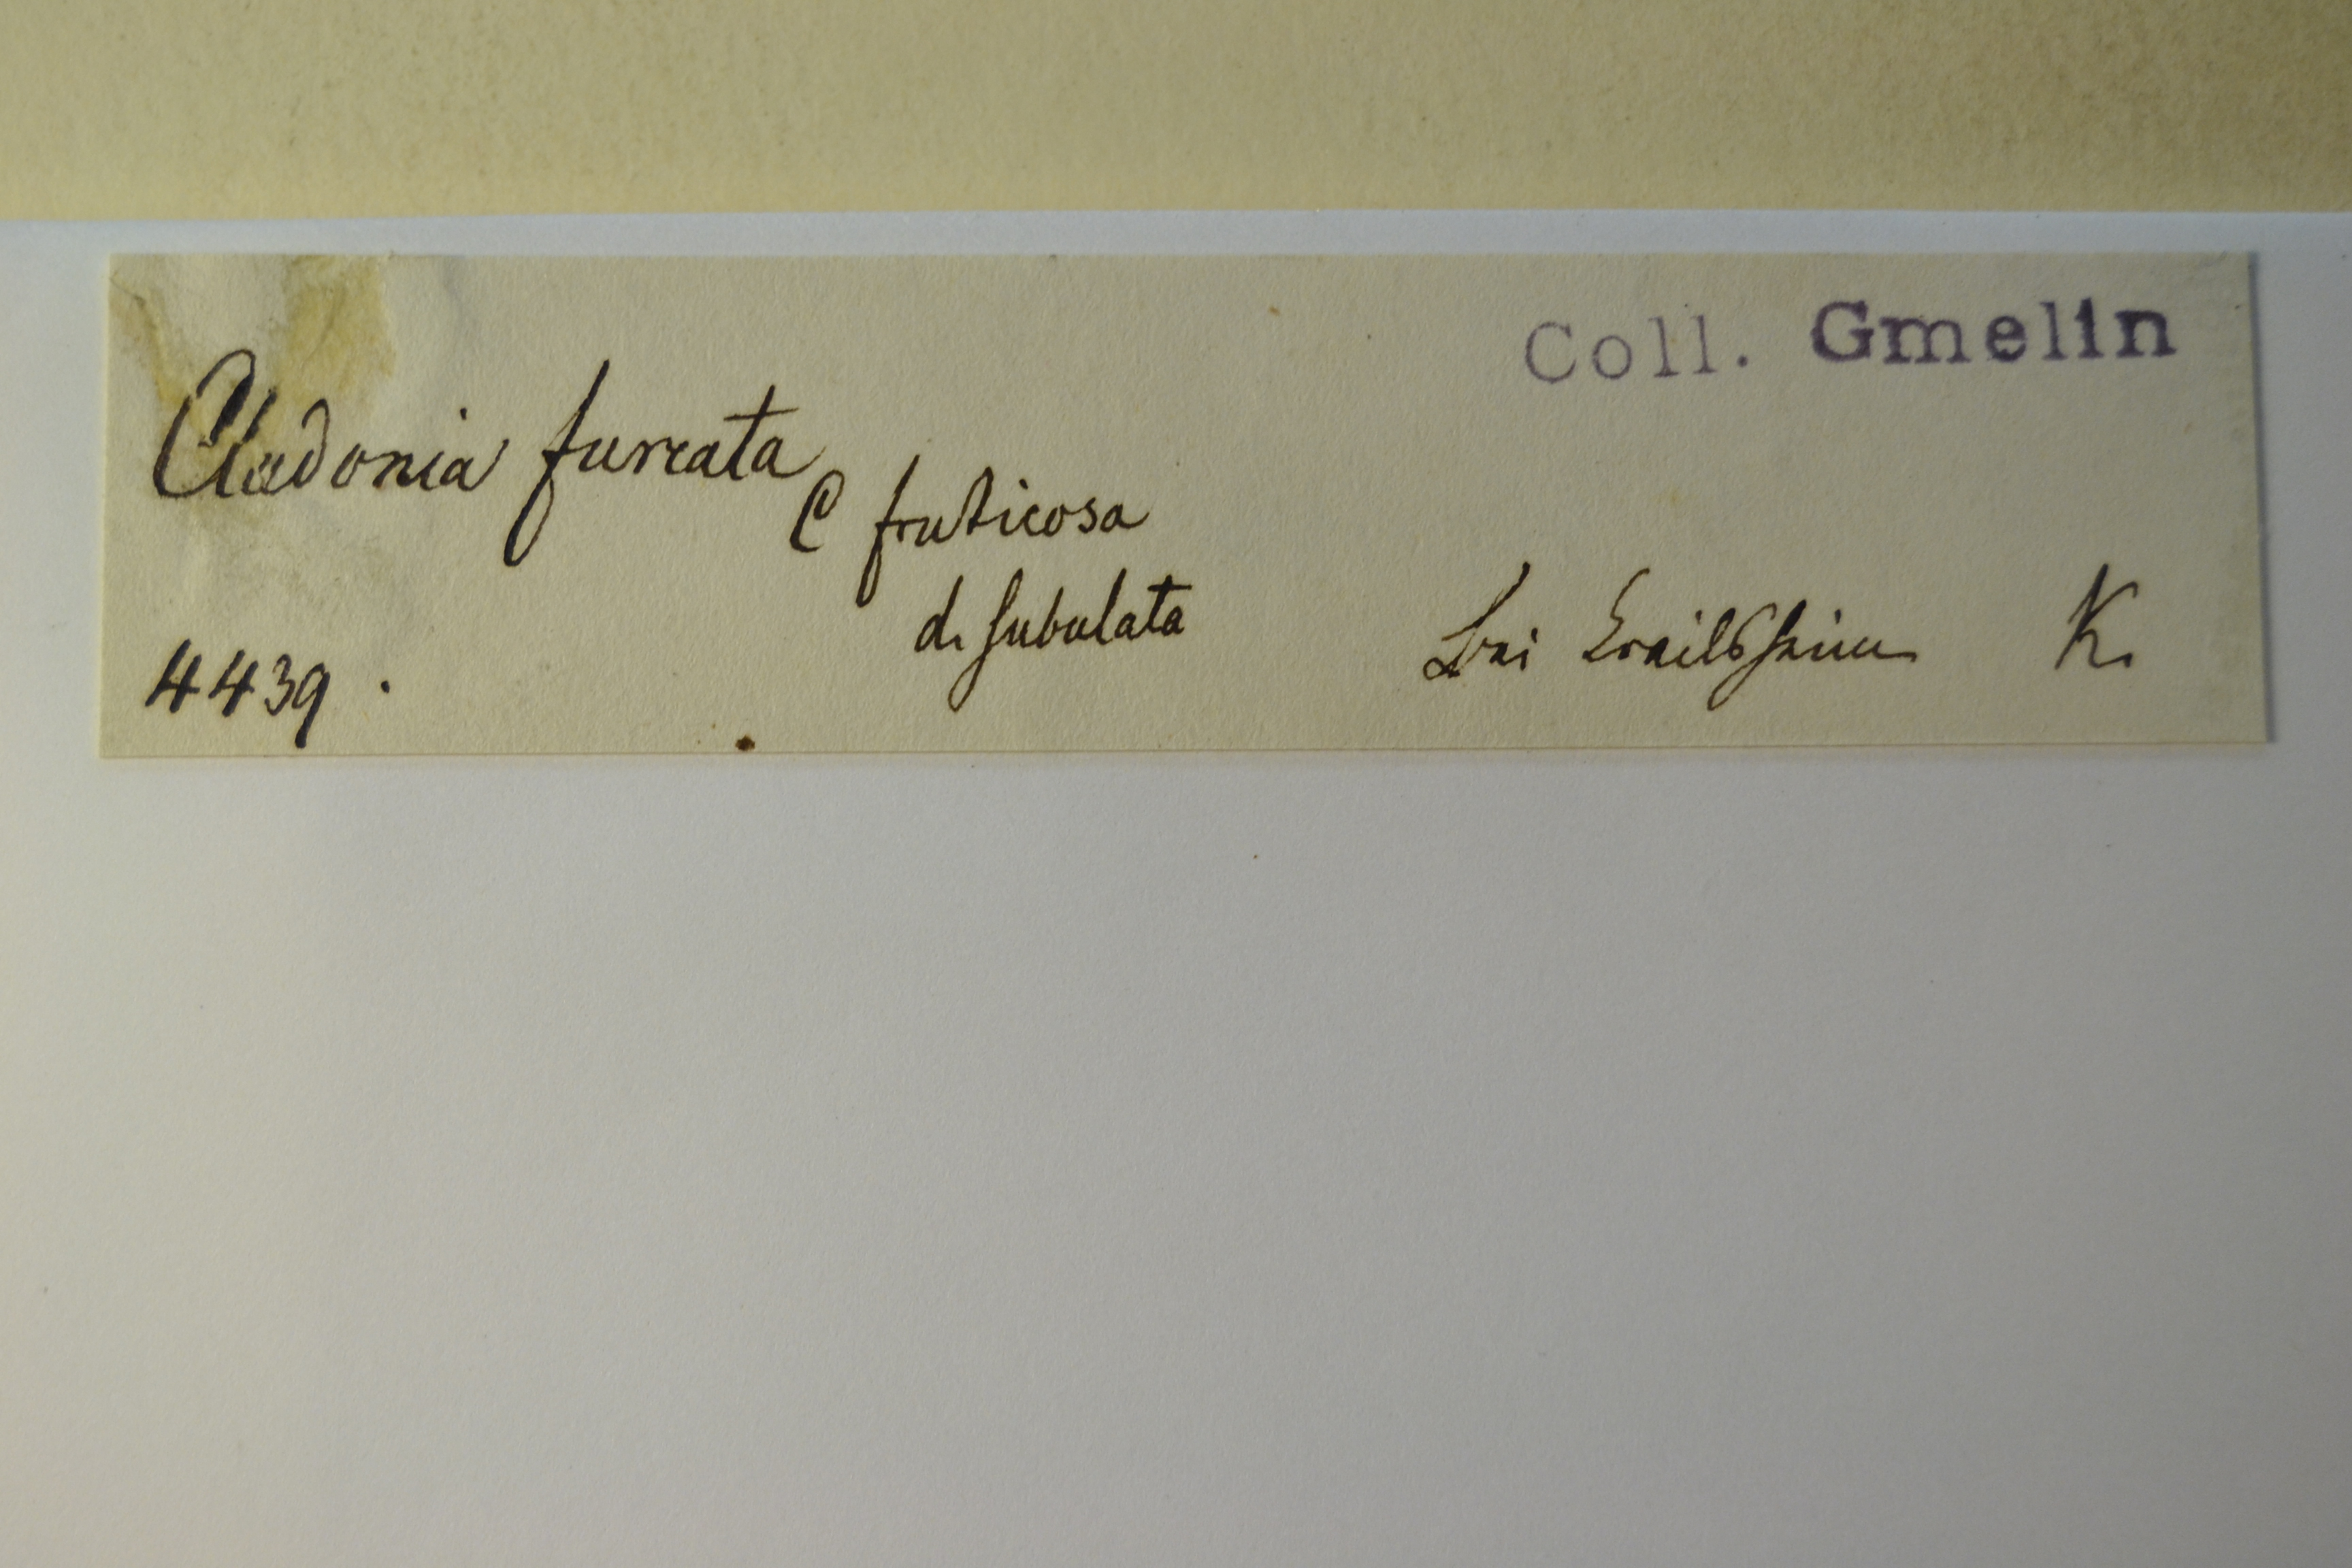 Coll. Gmelin
Cladonia furcata
C fruticosa
d. subulata
Bei Crailsheim K.
4439.